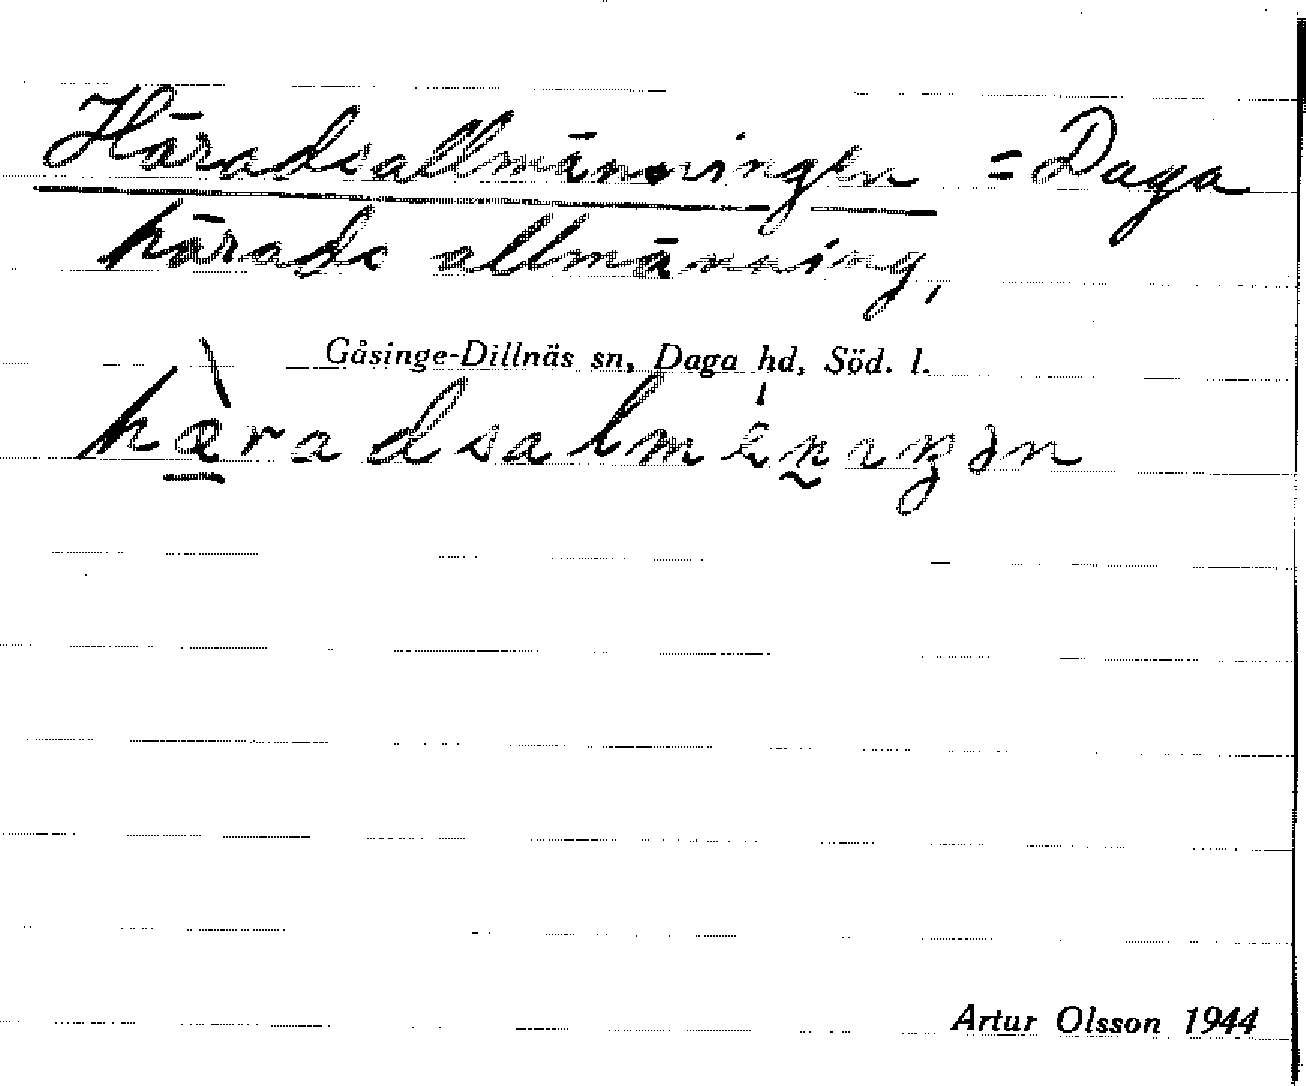 Häradsallmänningen = Daga
härads allmänning,
Gåsinge-Dillnäs sn, Daga hd, Söd. l.
hæ̀radsalmén̰ıŋən
Artur Olsson 1944